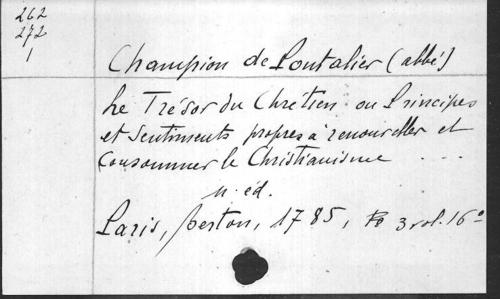 262
272
1
Champion de Pontalier (abbé)
Le Trésor du Chrétien ou Principes
et Sentiments propres à renouveller et
Consommer le Christianisme ...
n. éd.
Paris, Berton, 1785, 3 vol. 16°